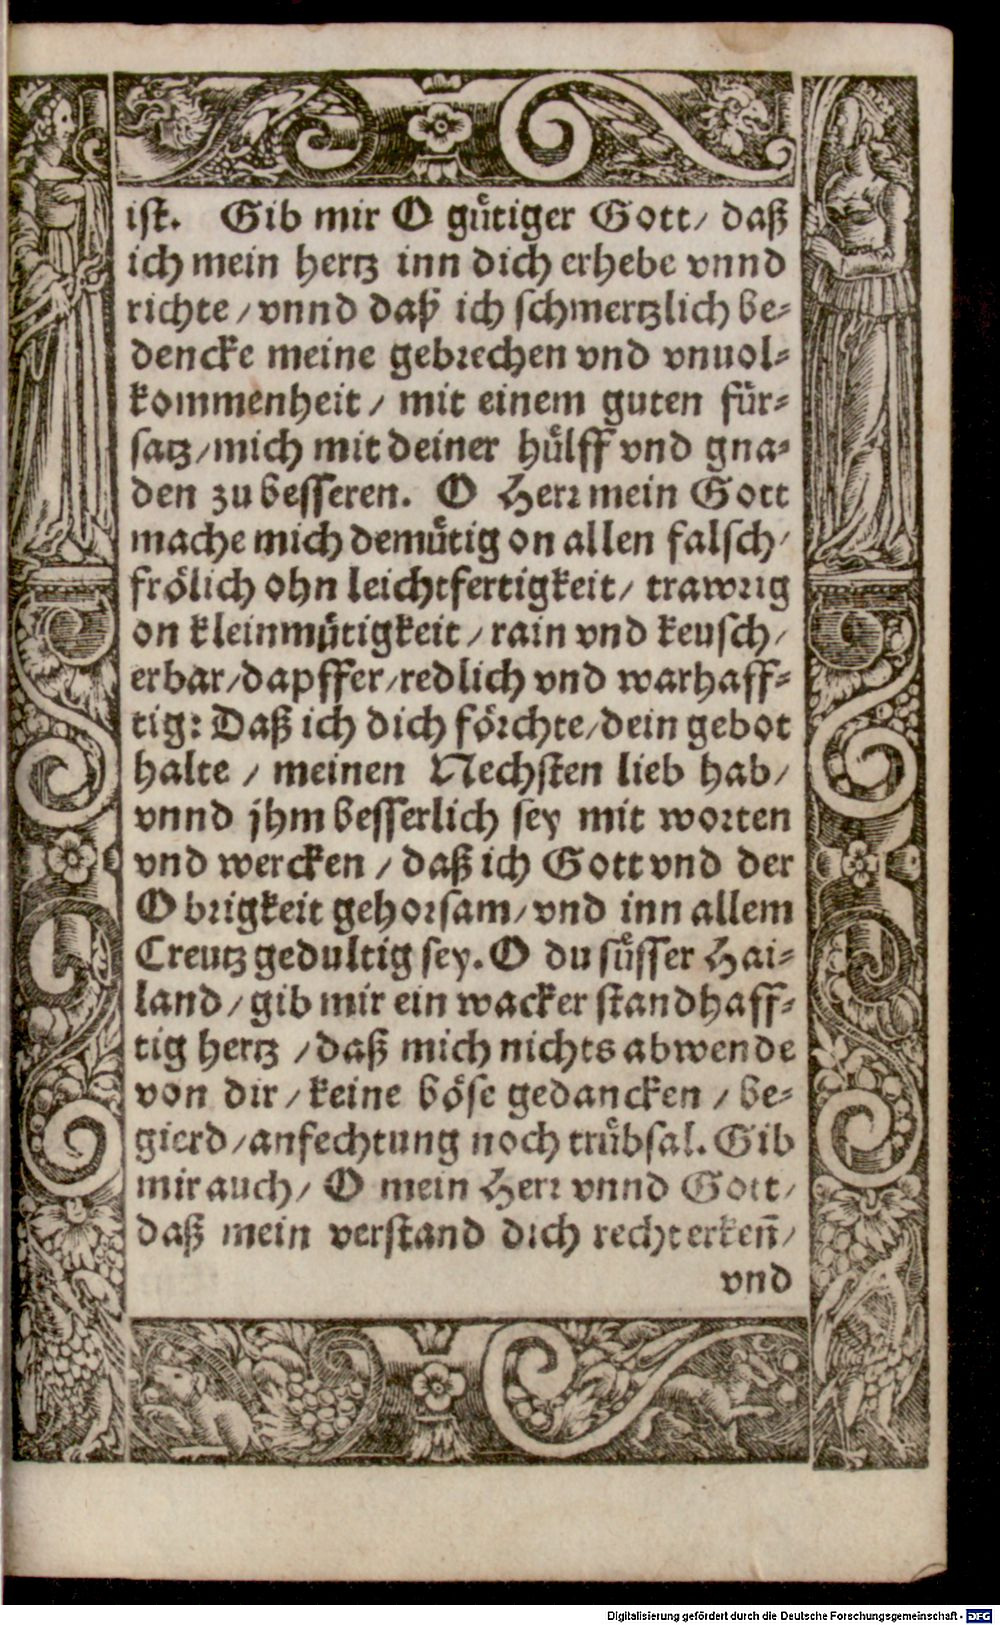 ist. Gib mir O guͤtiger Gott/ daß
ich mein hertz inn dich erhebe vnnd
richte/ vnnd daß ich schmertzlich be-
dencke meine gebrechen vnd vnuol-
kommenheit/ mit einem guten fuͤr-
satz/ mich mit deiner huͤlff vnd gna-
den zu besseren. O Herr mein Gott
mache mich demuͤtig on allen falsch/
froͤlich ohn leichtfertigkeit/ trawrig
on kleinmuͤtigkeit/ rain vnd keusch/
erbar/ dapffer/ redlich vnd warhaff-
tig: Daß ich dich foͤrchte/ dein gebot
halte/ meinen Nechsten lieb hab/
vnnd jhm besserlich sey mit worten
vnd wercken/ daß ich Gott vnd der
Obrigkeit gehorsam/ vnd inn allem
Creutz gedultig sey. O du suͤsser Hai-
land/ gib mir ein wacker standhaff-
tig hertz/ daß mich nichts abwende
von dir/ keine boͤse gedancken/ be-
gierd/ anfechtung noch truͤbsal. Gib
mir auch/ O mein Herr vnnd Gott/
daß mein verstand dich recht erkeñ/
vnd
Digitalisierung gefördert durch die Deutsche Forschungsgemeinschaft - DFG